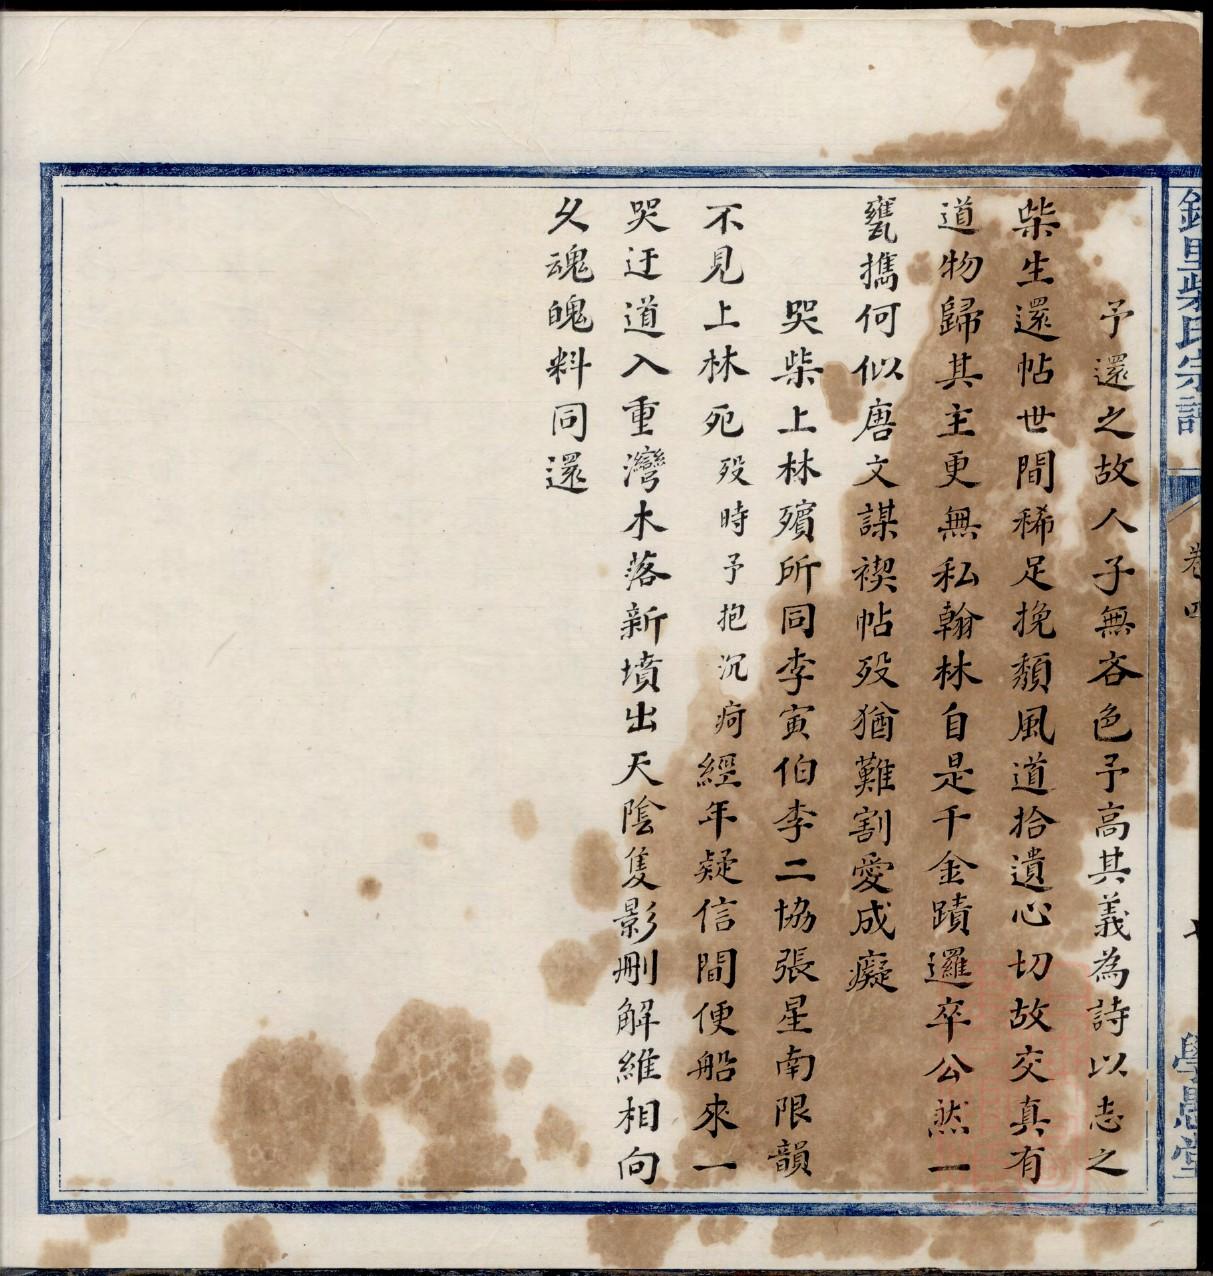 予還之故人子無吝色予高其義為詩以志之
柴生還帖世間稀足挽頹風道拾遺心切故交真有
道物歸其主更無私翰林自是千金蹟邏卒公然一
甕攜何似唐文謀禊帖歿猶難割愛成癡
哭柴上林殯所同李寅伯李二協張星南限韻
不見上林死歿時予抱沉疴經年疑信間便船來一
哭迂道入重灣木落新墳出天陰隻影刪解維相向
久魂魄料同還
柴氏宗譜
卷四
學愚堂